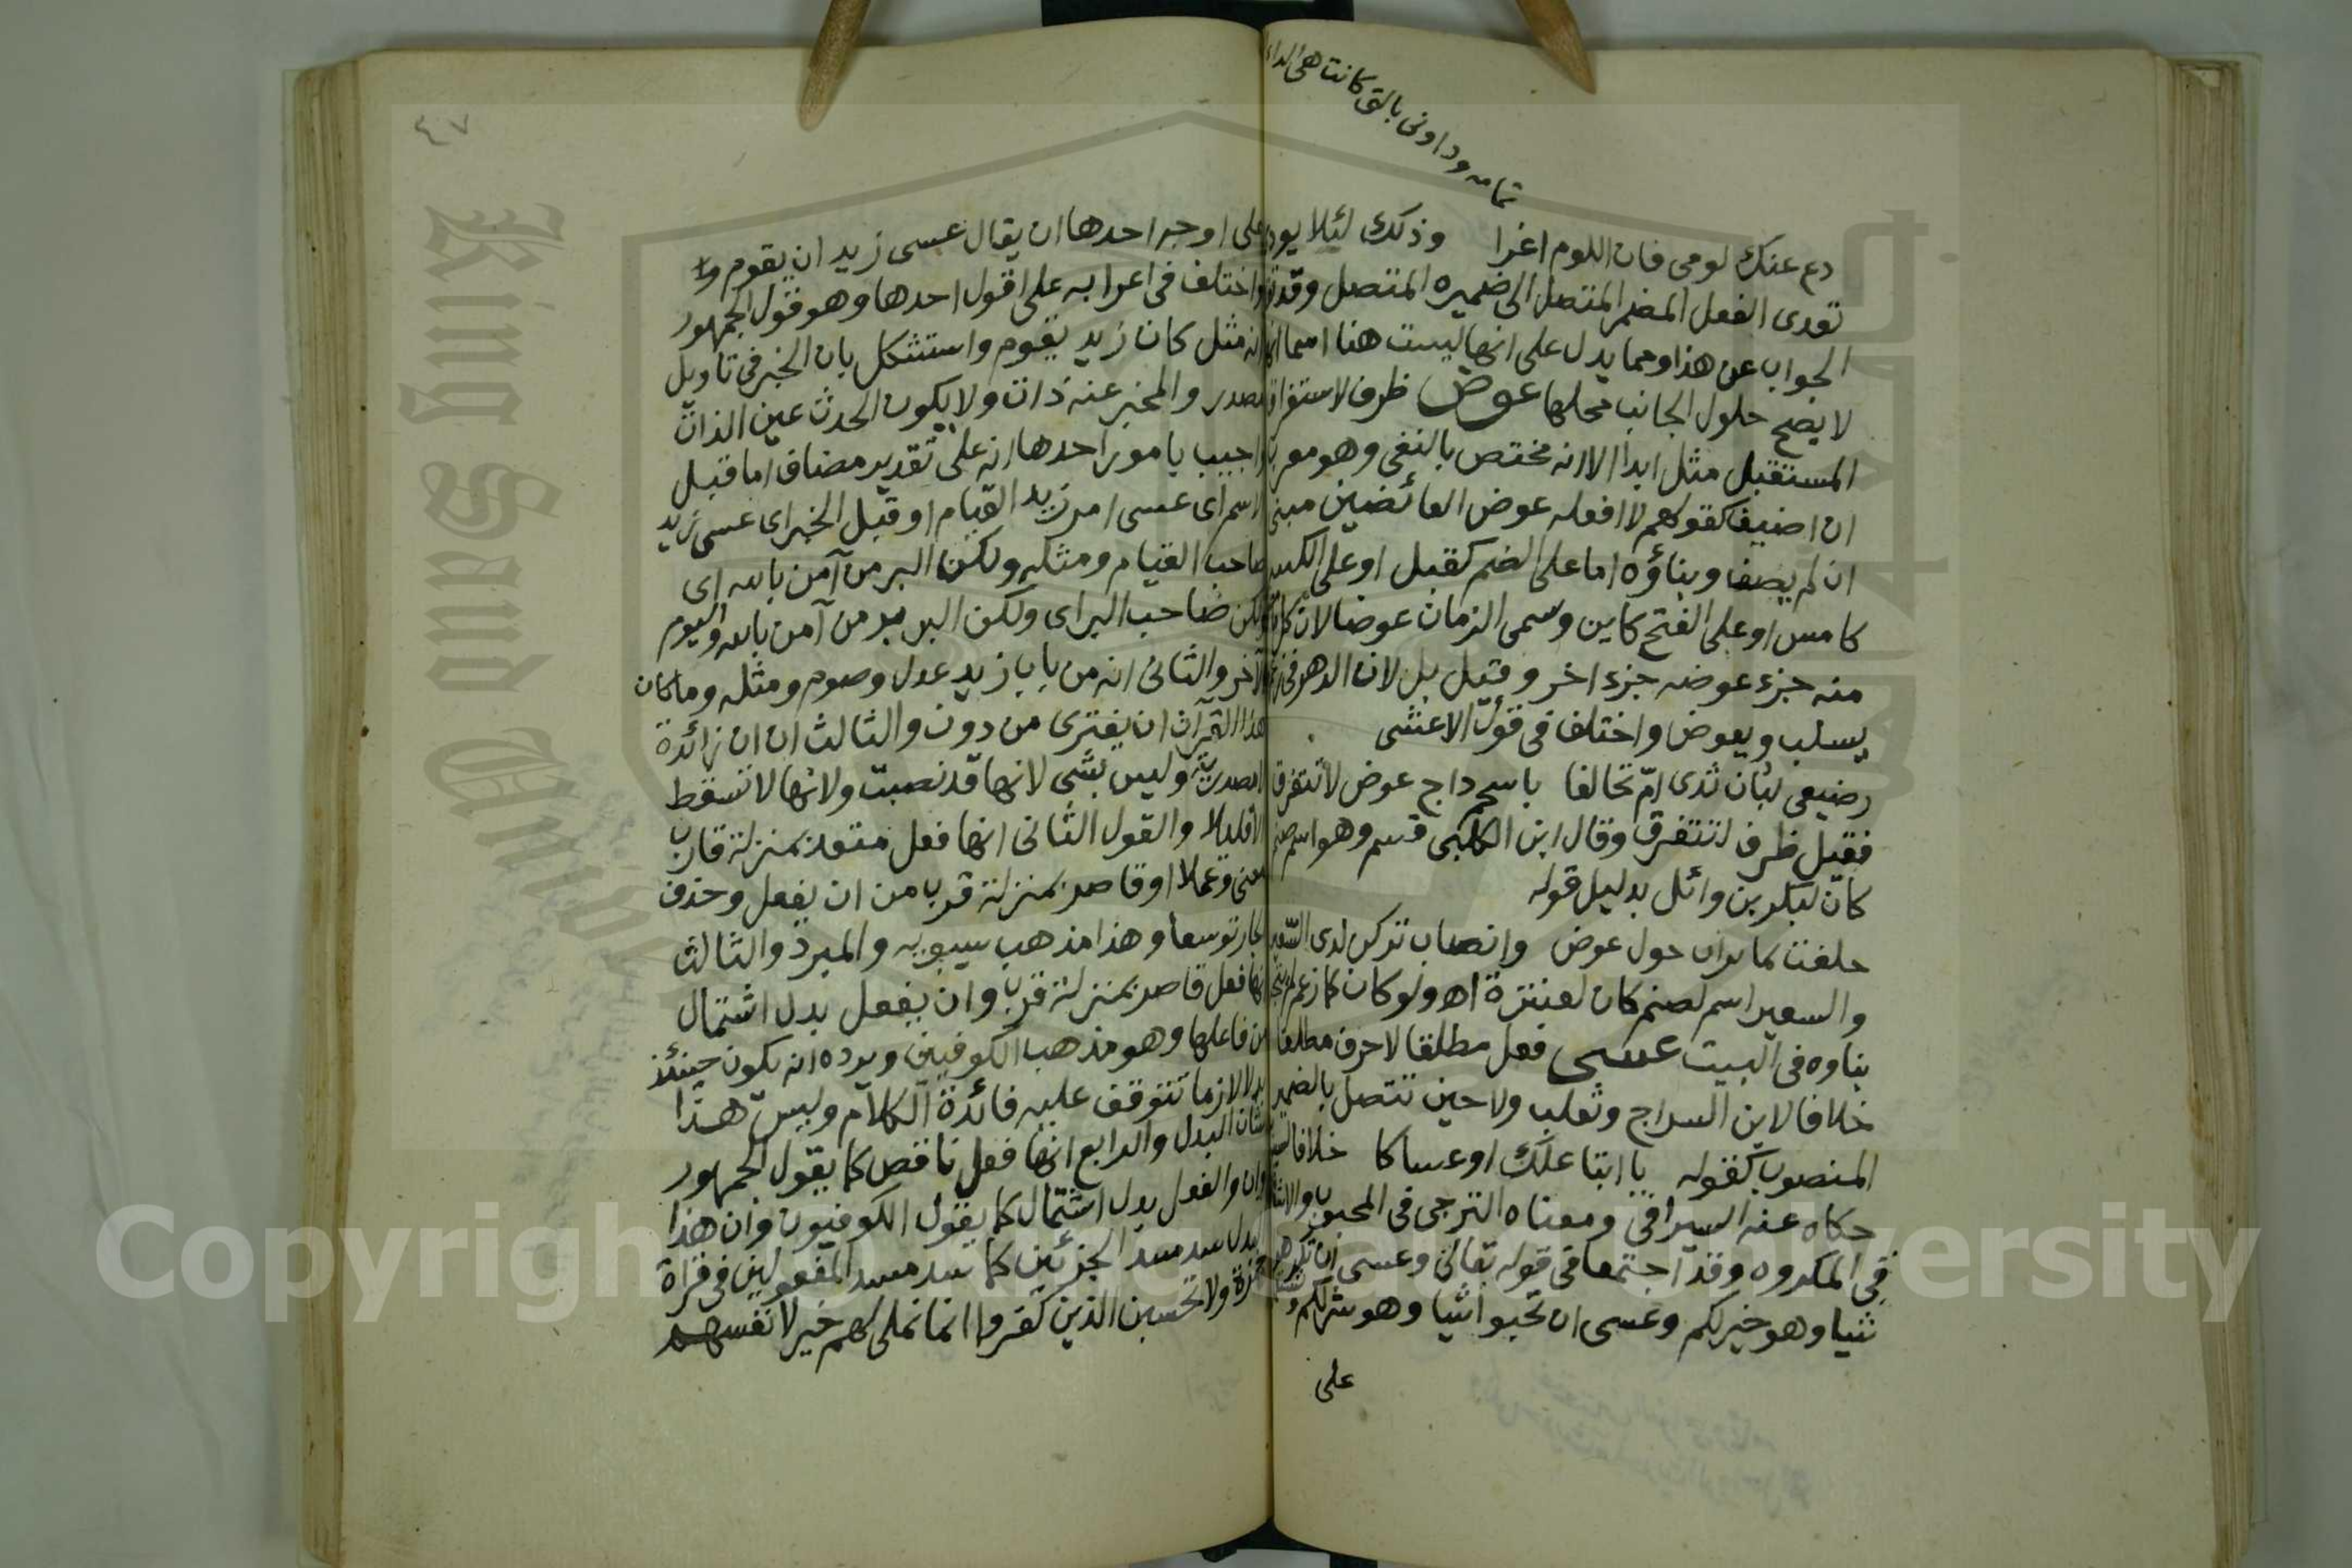 تمامه وداوني بالتي كانت هي الداء
دع عنك لومي فان اللوم اغرا وذلك لئلا يودي
تعدى الفعل المضمر المتصل الى ضميره المتصل وقد تقد
الجواب عن هذا ومما يدل على انها ليست هنا اسما انه
لا يصح حلول الجانب محلها عوض ظرف لاستغراق
المستقبل مثل ابدا الا انه مختص بالنفي وهو معرب
ان اضيف كقولهم لا افعله عوض العائضين مبني
ان لم يضف وبناؤه اما على الضم كقبل او على الكسر
كامس او على الفتح كاين وسمى الزمان عوضا لانه كلما
منه جزء عوضه جزء اخر وقيل بل لان الدهر في زعمهم
يسلب ويعوض واختلف في قول الاعشى
رضيعي لبان ثدى ام تحالفا باسحم داج عوض لا نتفرق
فقيل ظرف لنتفرق وقال ابن الكلبي قسم وهو اسم صنم
كان لبكر بن وائل بدليل قوله
حلفت بمائرات حول عوض وانصاب تركن لدى السعير
والسعير اسم لصنم كان لعنترة اه ولو كان كما زعم لم يتجه
بناوه في البيت عسى فعل مطلقا لا حرف مطلقا
خلافا لابن السراج وثعلب ولا حين تتصل بالضمير
المنصوب كقوله يا ابتا علك او عساكا خلافا لسيبويه
حكاه عنه السيرافي ومعناه الترجي في المحبوب والاشفاق
في المكروه وقد اجتمعا في قوله تعالى وعسى ان تكرهوا
شيا وهو خير لكم وعسى ان تحبوا شيا وهو شر لكم
على
٤٧
على اوجه احدها ان يقال عسى زيد ان يقوم
واختلف في اعرابه على اقول احدها وهو قول الجمهور
انه مثل كان زيد يقوم واستشكل بان الخبر في تاويل
المصدر والمخبر عنه ذات ولا يكون الحدث عين الذات
واجيب بامور احدها انه على تقدير مضاف اما قبل
الاسم اى عسى امر زيد القيام او قبل الخبر اى عسى زيد
صاحب القيام ومثله ولكن البر من آمن بالله اى
ولكن صاحب البر اى ولكن البر بر من آمن بالله واليوم
الآخر والثاني انه من باب زيد عدل وصوم ومثله وما كان
هذا القرآن ان يفترى من دون والثالث ان ان زائدة
لا مصدرية وليس بشى لانها قد نصبت ولانها لا تسقط
الا قليلا والقول الثاني انها فعل متعد بمنزلة قارب
معنى وعملا او قاصر بمنزلة قرب من ان يفعل وحذف
الجار توسعا وهذا مذهب سيبويه والمبرد والثالث
انها فعل قاصر بمنزلة قرب وان يفعل بدل اشتمال
من فاعلها وهو مذهب الكوفيين ويرده انه يكون حينئذ
بدلا لازما تتوقف عليه فائدة الكلام وليس هذا
شان البدل والرابع انها فعل ناقص كما يقول الجمهور
وان والفعل بدل اشتمال كما يقول الكوفيون وان هذا
البدل سد مسد الجزئين كما سد مسد المفعولين في قراة
حمزة ولا تحسبن الذين كفروا انما نملى لهم خير لانفسهم